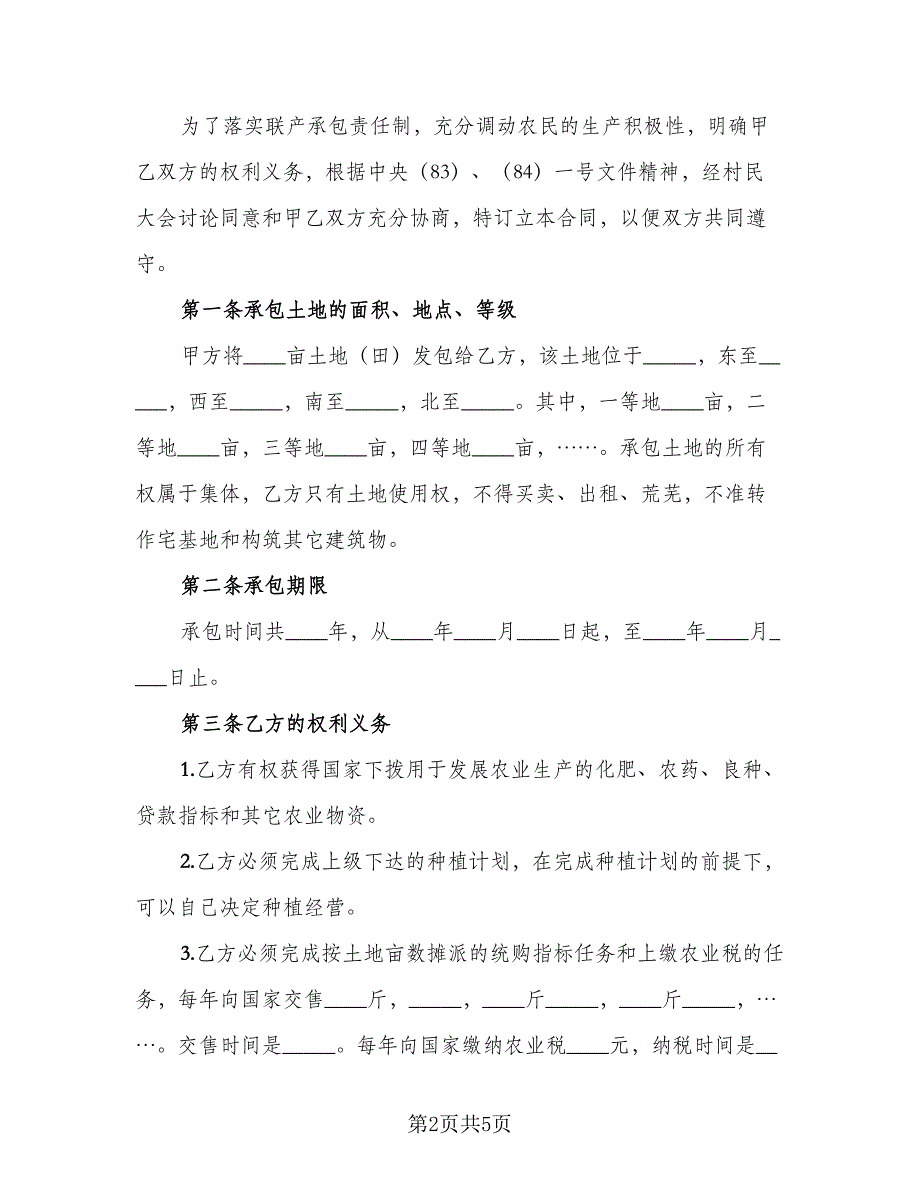 为了落实联产承包责任制，充分调动农民的生产积极性，明确甲
乙双方的权利义务，根据中央（83）、（84）一号文件精神，经村民
大会讨论同意和甲乙双方充分协商，特订立本合同，以便双方共同遵
守。
第一条承包土地的面积、地点、等级
甲方将____亩土地（田）发包给乙方，该土地位于_____，东至__
___，西至_____，南至_____，北至_____。其中，一等地____亩，二
等地____亩，三等地____亩，四等地____亩，……。承包土地的所有
权属于集体，乙方只有土地使用权，不得买卖、出租、荒芜，不准转
作宅基地和构筑其它建筑物。
第二条承包期限
承包时间共____年，从____年____月____日起，至____年____月_
___日止。
第三条乙方的权利义务
1.乙方有权获得国家下拨用于发展农业生产的化肥、农药、良种、
贷款指标和其它农业物资。
2.乙方必须完成上级下达的种植计划，在完成种植计划的前提下，
可以自己决定种植经营。
3.乙方必须完成按土地亩数摊派的统购指标任务和上缴农业税的任
务，每年向国家交售____斤，_____，____斤_____，____斤_____，…
…。交售时间是_____。每年向国家缴纳农业税____元，纳税时间是__
第2页共5页